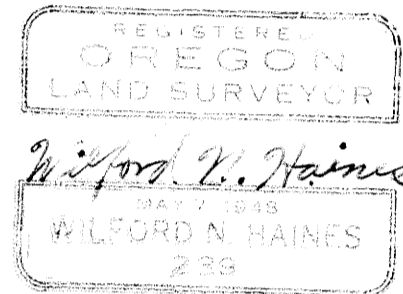 REGISTERED
OREGON
LAND SURVEYOR
Wilford N. Haines
MAY 7 1948
WILFORD N. HAINES
239